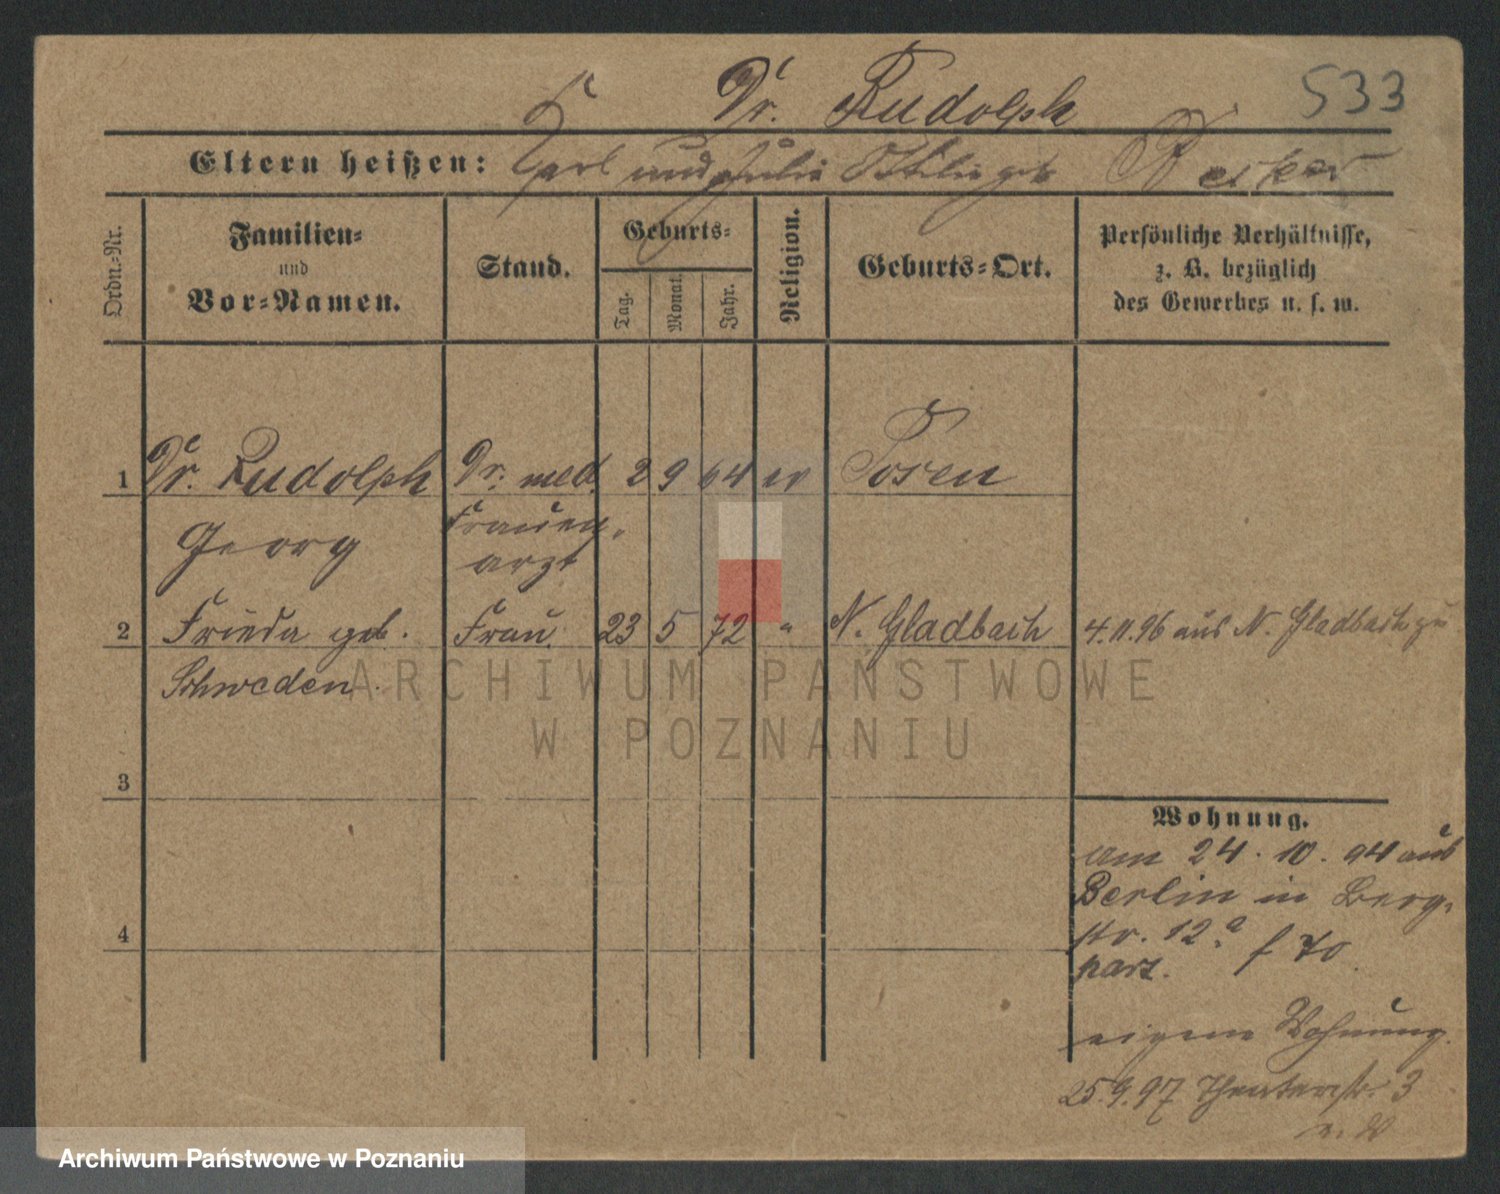 533
Dr. Rudolph
Eltern heißen: Karl und Julie Ottilie geb. Becker
Ordn.-Nr.
Familien-
und
Vor-Namen.
Stand.
Geburts-
Tag.
Monat.
Jahr.
Religion.
Geburts-Ort.
Persönliche Verhältnisse,
z. B. bezüglich
des Gewerbes u. s. w.
1 Dr. Rudolph Dr. med. 2 9 64 ev Posen
Georg Frauen-
arzt
2 Frieda geb. Frau 23 5 72 " N. Gladbach 4.11.96 aus N. Gladbach zu
Schweden
3
4
Wohnung.
am 24. 10. 94 aus
Berlin in Berg-
str. 12a
part. f 70
eigene Wohnung.
25.9.97 Theaterstr. 3
ARCHIWUM PAŃSTWOWE
W POZNANIU
Archiwum Państwowe w Poznaniu